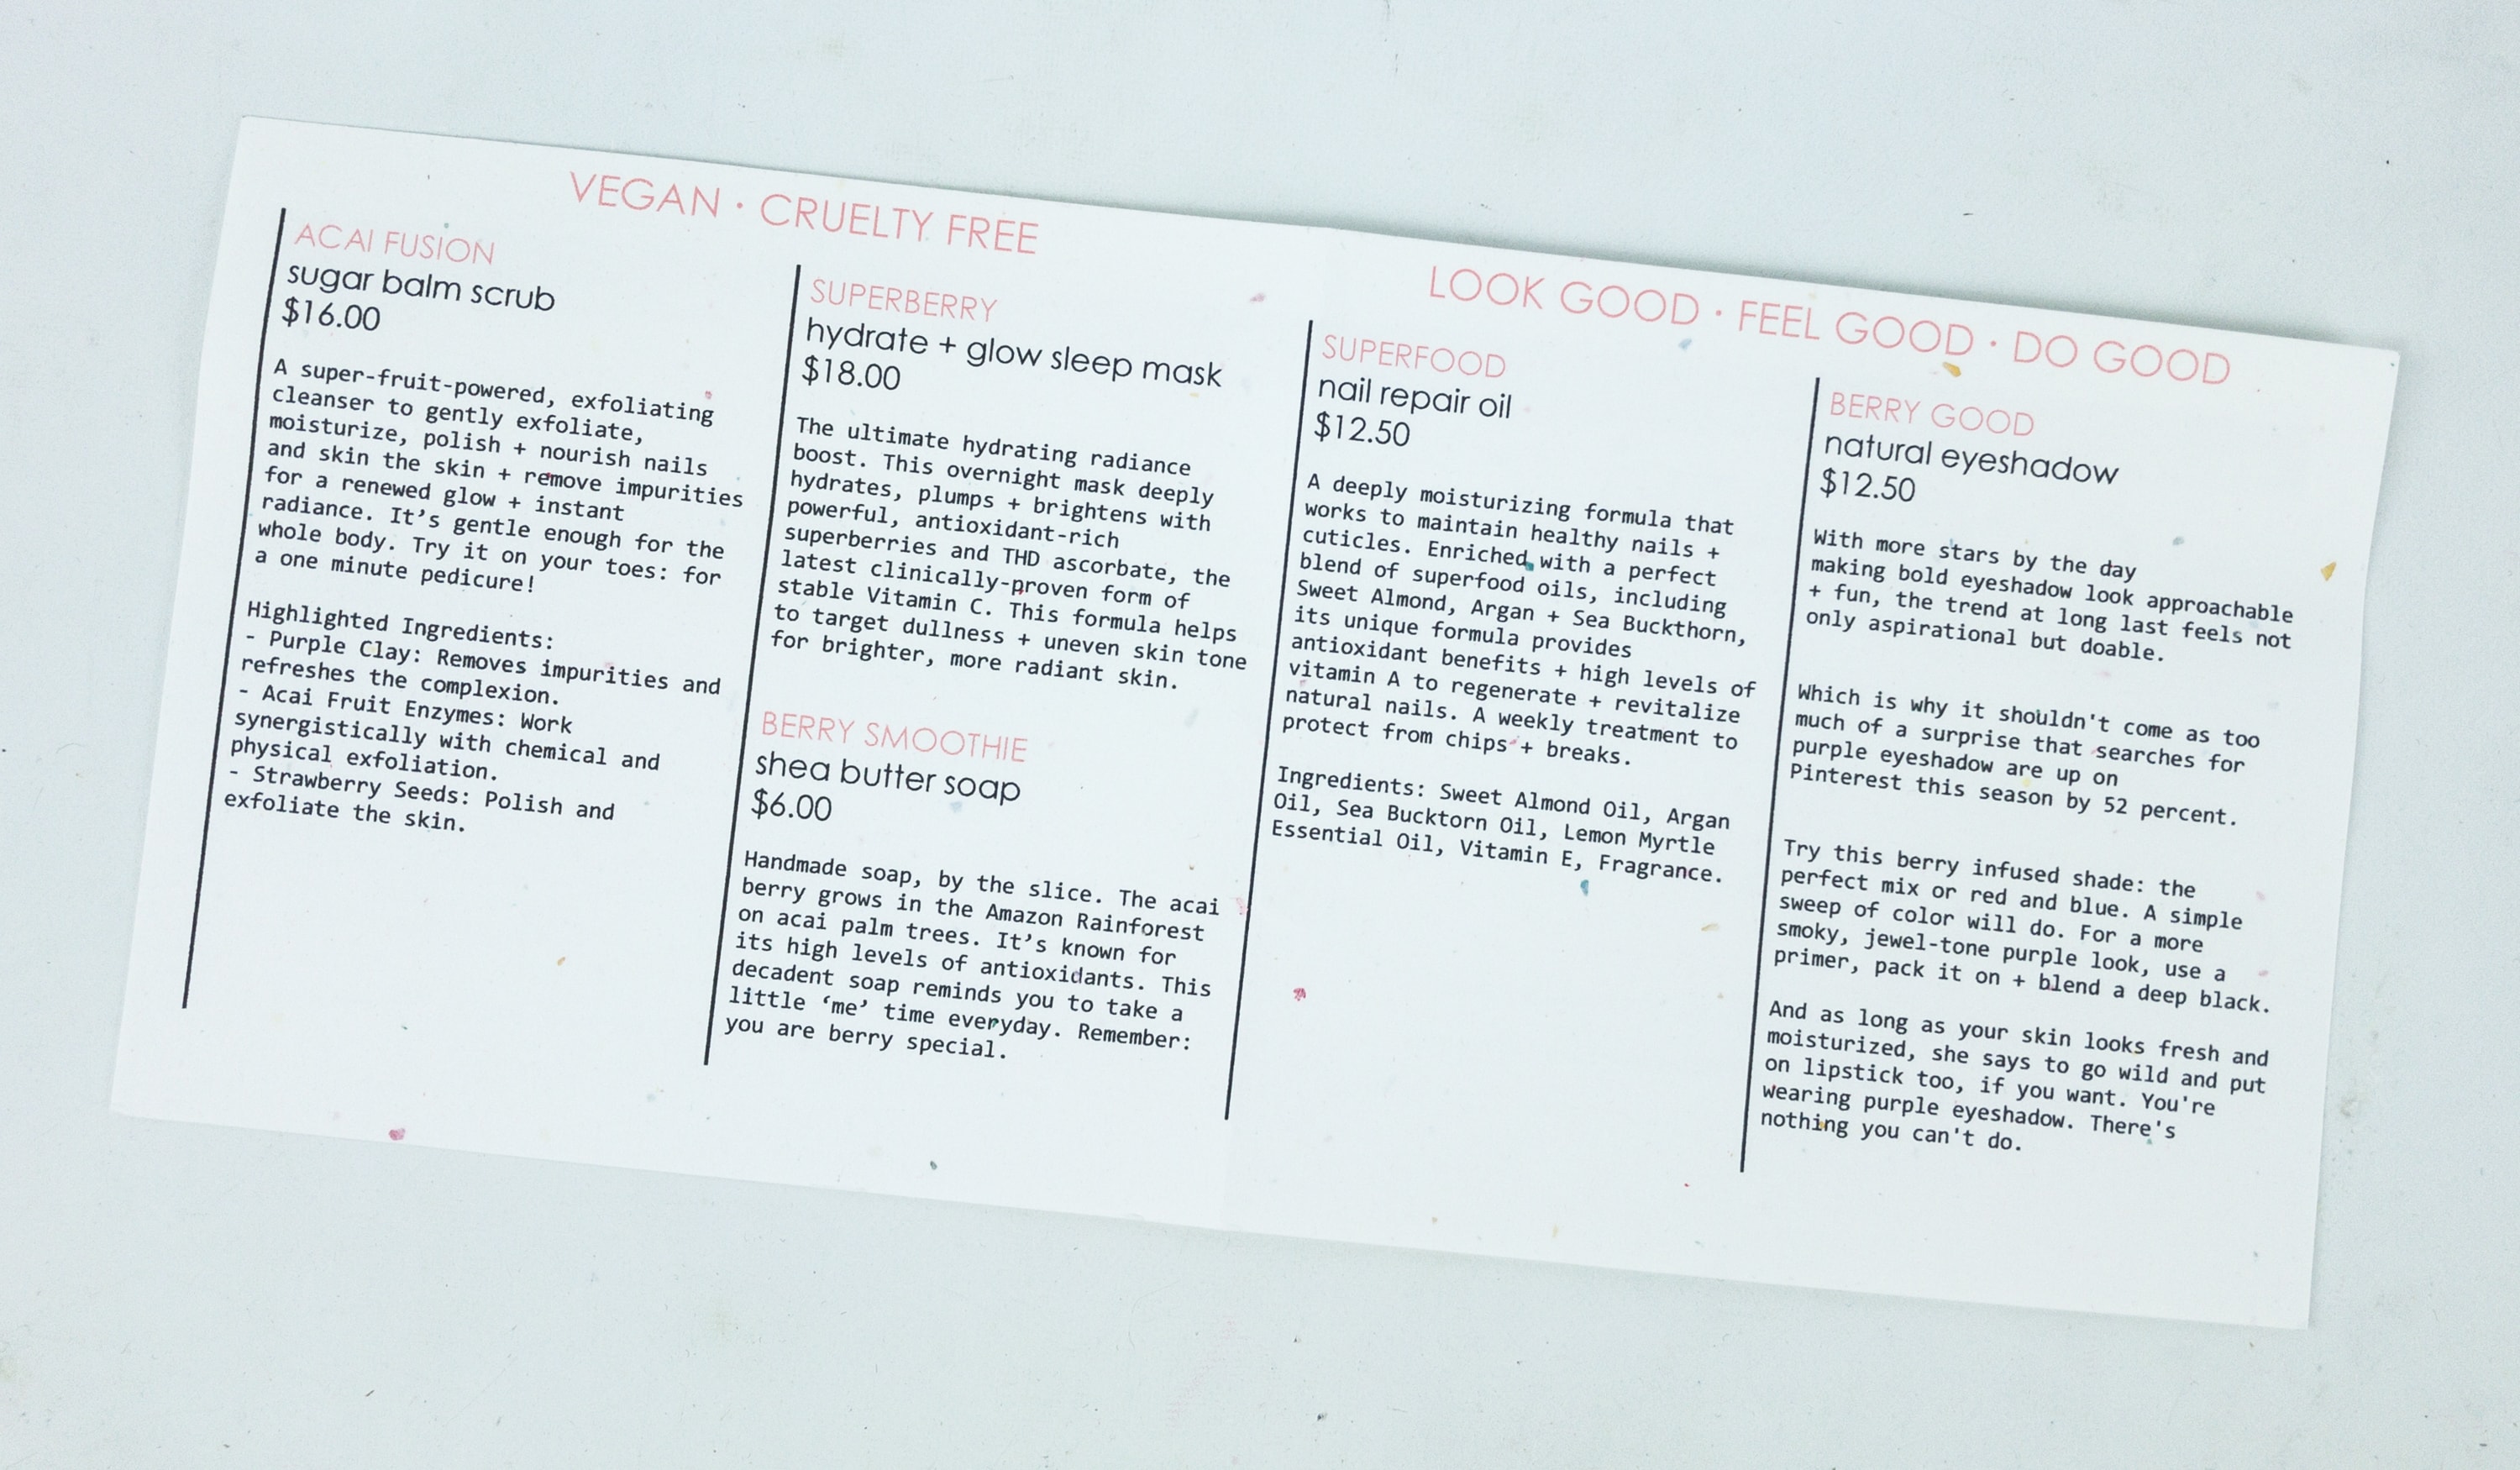 VEGAN · CRUELTY FREE
ACAI FUSION
sugar balm scrub
$16.00
A super-fruit-powered, exfoliating
cleanser to gently exfoliate,
moisturize, polish + nourish nails
and skin the skin + remove impurities
for a renewed glow + instant
radiance. It’s gentle enough for the
whole body. Try it on your toes: for
a one minute pedicure!
Highlighted Ingredients:
- Purple Clay: Removes impurities and
refreshes the complexion.
- Acai Fruit Enzymes: Work
synergistically with chemical and
physical exfoliation.
- Strawberry Seeds: Polish and
exfoliate the skin.
SUPERBERRY
hydrate + glow sleep mask
$18.00
The ultimate hydrating radiance
boost. This overnight mask deeply
hydrates, plumps + brightens with
powerful, antioxidant-rich
superberries and THD ascorbate, the
latest clinically-proven form of
stable Vitamin C. This formula helps
to target dullness + uneven skin tone
for brighter, more radiant skin.
BERRY SMOOTHIE
shea butter soap
$6.00
Handmade soap, by the slice. The acai
berry grows in the Amazon Rainforest
on acai palm trees. It’s known for
its high levels of antioxidants. This
decadent soap reminds you to take a
little ‘me’ time everyday. Remember:
you are berry special.
LOOK GOOD · FEEL GOOD · DO GOOD
SUPERFOOD
nail repair oil
$12.50
A deeply moisturizing formula that
works to maintain healthy nails +
cuticles. Enriched with a perfect
blend of superfood oils, including
Sweet Almond, Argan + Sea Buckthorn,
its unique formula provides
antioxidant benefits + high levels of
vitamin A to regenerate + revitalize
natural nails. A weekly treatment to
protect from chips + breaks.
Ingredients: Sweet Almond Oil, Argan
Oil, Sea Bucktorn Oil, Lemon Myrtle
Essential Oil, Vitamin E, Fragrance.
BERRY GOOD
natural eyeshadow
$12.50
With more stars by the day
making bold eyeshadow look approachable
+ fun, the trend at long last feels not
only aspirational but doable.
Which is why it shouldn't come as too
much of a surprise that searches for
purple eyeshadow are up on
Pinterest this season by 52 percent.
Try this berry infused shade: the
perfect mix or red and blue. A simple
sweep of color will do. For a more
smoky, jewel-tone purple look, use a
primer, pack it on + blend a deep black.
And as long as your skin looks fresh and
moisturized, she says to go wild and put
on lipstick too, if you want. You're
wearing purple eyeshadow. There's
nothing you can't do.